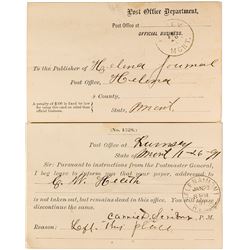 Post Office Department,
Post Office at
OFFICIAL BUSINESS.
MONT.
To the Publisher of Helena Journal
Post Office, Helena
County,
State, Mont.
A penalty of $300 is fixed for using this card on other than official business.
(No. 1528.)
Post Office at Rumsey
State of Mont 1-26-91
Sir: Pursuant to instructions from the Postmaster General, I
beg leave to inform you that your paper, addressed to
C. W. Heath
is not taken out, but remains dead in this office. You will please
discontinue the same.
Carrie D. P. M.
Reason: Left this place